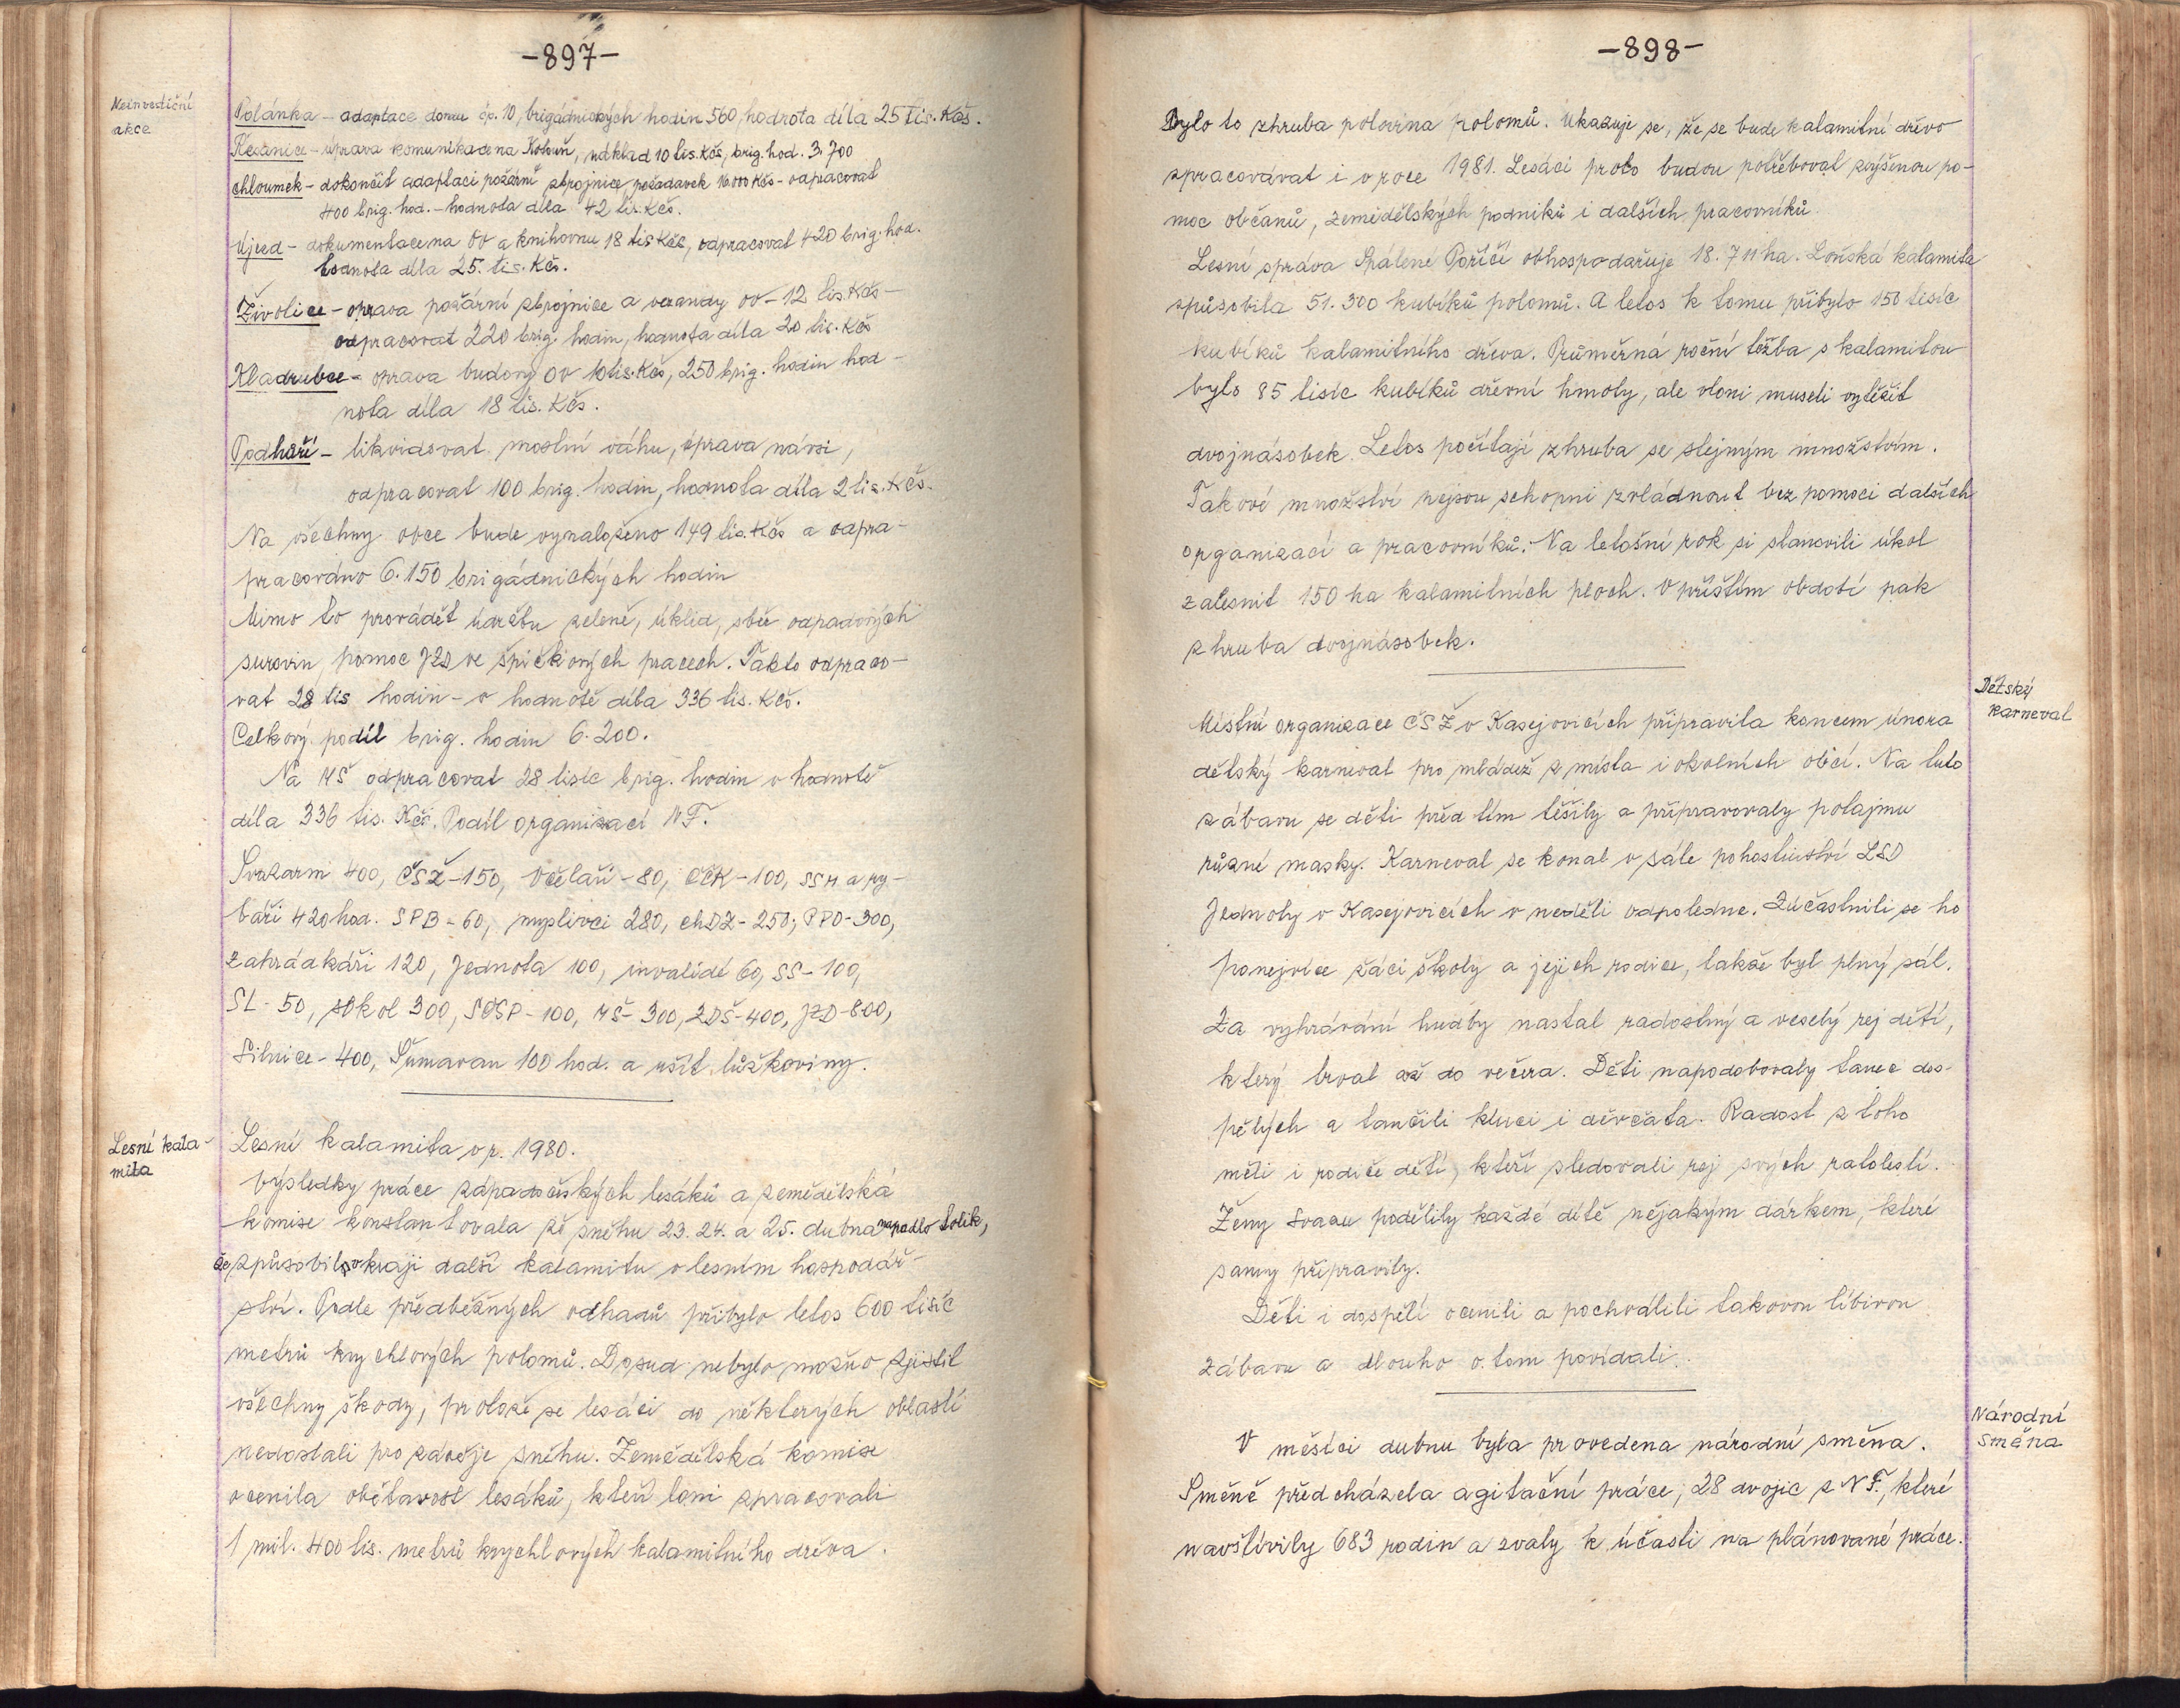 -897-
Neinvestiční
akce
Polánka - adaptace domu čp. 10, brigádnických hodin 560, hodnota díla 25 tis. Kčs.
Řesanice - úprava komunikace na Kotouň, náklad 10 tis. Kčs, brig. hod. 3.700
Chloumek - dokončit adaptaci požární zbrojnice, požadavek 16.000 Kčs - odpracovat
400 brig. hod. - hodnota díla 42 tis. Kčs.
Újezd - dokumentace na OV a knihovnu 18 tis Kčs, odpracovat 420 brig. hod.
hodnota díla 25. tis. Kčs.
Životice - oprava požární zbrojnice a verandy OV - 12 tis. Kčs -
odpracovat 220 brig. hodin, hodnota díla 20 tis. Kčs
Kladrubce - oprava budovy OV 10 tis. Kčs, 250 brig. hodin hod-
nota díla 18 tis. Kčs.
Podhůří - likvidovat mostní váhu, úprava návsi,
odpracovat 100 brig. hodin, hodnota díla 2 tis. Kčs.
Na všechny obce bude vynaloženo 149 tis. Kčs a odpra-
pracováno 6.150 brigádnických hodin
Mimo to provádět údržbu zeleně, úklid, sběr odpadových
surovin, pomoc JZD ve špičkových pracech. Takto odpraco-
vat 28 tis hodin - v hodnotě díla 336 tis. Kčs.
Celkový podíl brig. hodin 6.200.
Na MŠ odpracovat 28 tisíc brig. hodin v hodnotě
díla 336 tis. Kčs. Podíl organizací NF.
Svazarm 400, ČSŽ - 150, Včelaři - 80, ČČK - 100, SSM a ry-
báři 420 hod. SPB - 60, myslivci 280, chDZ - 250, PPO - 300,
zahrádkáři 120, Jednota 100, invalidé 60, SS - 100,
SL - 50, sokol 300, SČSP - 100, MŠ - 300, ZDŠ - 400, JZD - 800,
Silnice - 400, Šumavan 100 hod. a ušít lůžkoviny.
Lesní kala-
mita
Lesní kalamita v r. 1980.
Výsledky práce západočeských lesáků a zemědělská
komise konstantovala že sněhu 23. 24. a 25. dubna napadlo tolik,
že způsobil v kraji další kalamitu v lesním hospodář-
ství. Podle předběžných odhadů přibylo letos 600 tisíc
metrů krychlových polomů. Dosud nebylo možno zjistit
všechny škody, protože se lesáci do některých oblastí
nedostali pro závěje sněhu. Zemědělská komise
ocenila obětavost lesáků, kteří loni zpracovali
1 mil. 400 tis. metrů krychlových kalamitního dřeva.
-898-
Bylo to zhruba polovina polomů. Ukazuje se, že se bude kalamitní dřevo
zpracovávat i v roce 1981. Lesáci proto budou potřebovat zvýšenou po-
moc občanů, zemědělských podniků i dalších pracovníků.
Lesní správa Spálené Poříčí obhospodařuje 18.711 ha. Loňská kalamita
způsobila 51.300 kubíků polomů. A letos k tomu přibylo 150 tisíc
kubíků kalamitního dřeva. Průměrná roční těžba s kalamitou
bylo 85 tisíc kubíků dřevní hmoty, ale vloni museli vytěžit
dvojnásobek. Letos počítají zhruba se stejným množstvím.
Takové množství nejsou schopni zvládnout bez pomoci dalších
organizací a pracovníků. Na letošní rok si stanovili úkol
zalesnit 150 ha kalamitních ploch. V příštím období pak
zhruba dvojnásobek.
Dětský
karneval
Místní organizace ČSŽ v Kasejovicích připravila koncem února
dětský karneval pro mládež z místa i okolních obcí. Na tuto
zábavu se děti před tím těšily a připravovaly potajmu
různé masky. Karneval se konal v sále pohostinství LSD
Jednoty v Kasejovicích v neděli odpoledne. Zúčastnili se ho
ponejvíce žáci školy a jejich rodice, takže byl plný sál.
Za vyhrávání hudby nastal radostný a veselý rej dětí,
který trval až do večera. Děti napodobovaly tanec dos-
pělých a tančili kluci i děvčata. Radost z toho
měli i rodiče dětí, kteří sledovali rej svých ratolestí.
Ženy svazu podělily každé dítě nějakým dárkem, které
samy připravily.
Děti i dospělí ocenili a pochválili takovou líbivou
zábavu a dlouho o tom povídali.
Národní
směna
V měsíci dubnu byla provedena národní směna.
Směně předcházela agitační práce, 28 dvojic z NF., které
navštívily 683 rodin a zvaly k účasti na plánované práce.